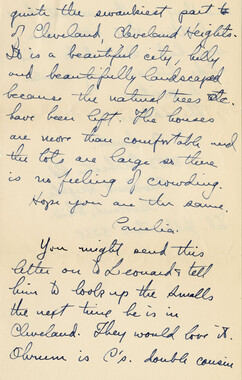 quite the swankiest part to
of Cleveland, Cleveland Heights.
It is a beautiful city, hilly
and beautifully landscaped
because the natural trees etc.
have been left. The houses
are more than comfortable and
the lots are large so there
is no feeling of crowding.
Hope you are the same.
Pamelia.
You might send this
letter on to Leonard & tell
him to look up the Smalls
the next time he is in
Cleveland. They would love it.
is C's. double cousin